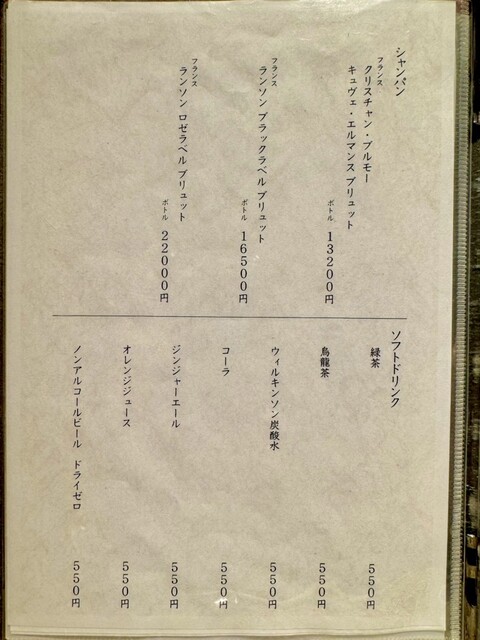 シャンパン
フランス
クリスチャン・ブルモー
キュヴェ・エルマンス ブリュット
ボトル 13200円
フランス
ランソン ブラックラベル ブリュット
ボトル 16500円
フランス
ランソン ロゼラベル ブリュット
ボトル 22000円
ソフトドリンク
緑茶 550円
烏龍茶 550円
ウィルキンソン炭酸水 550円
コーラ 550円
ジンジャーエール 550円
オレンジジュース 550円
ノンアルコールビール ドライゼロ 550円